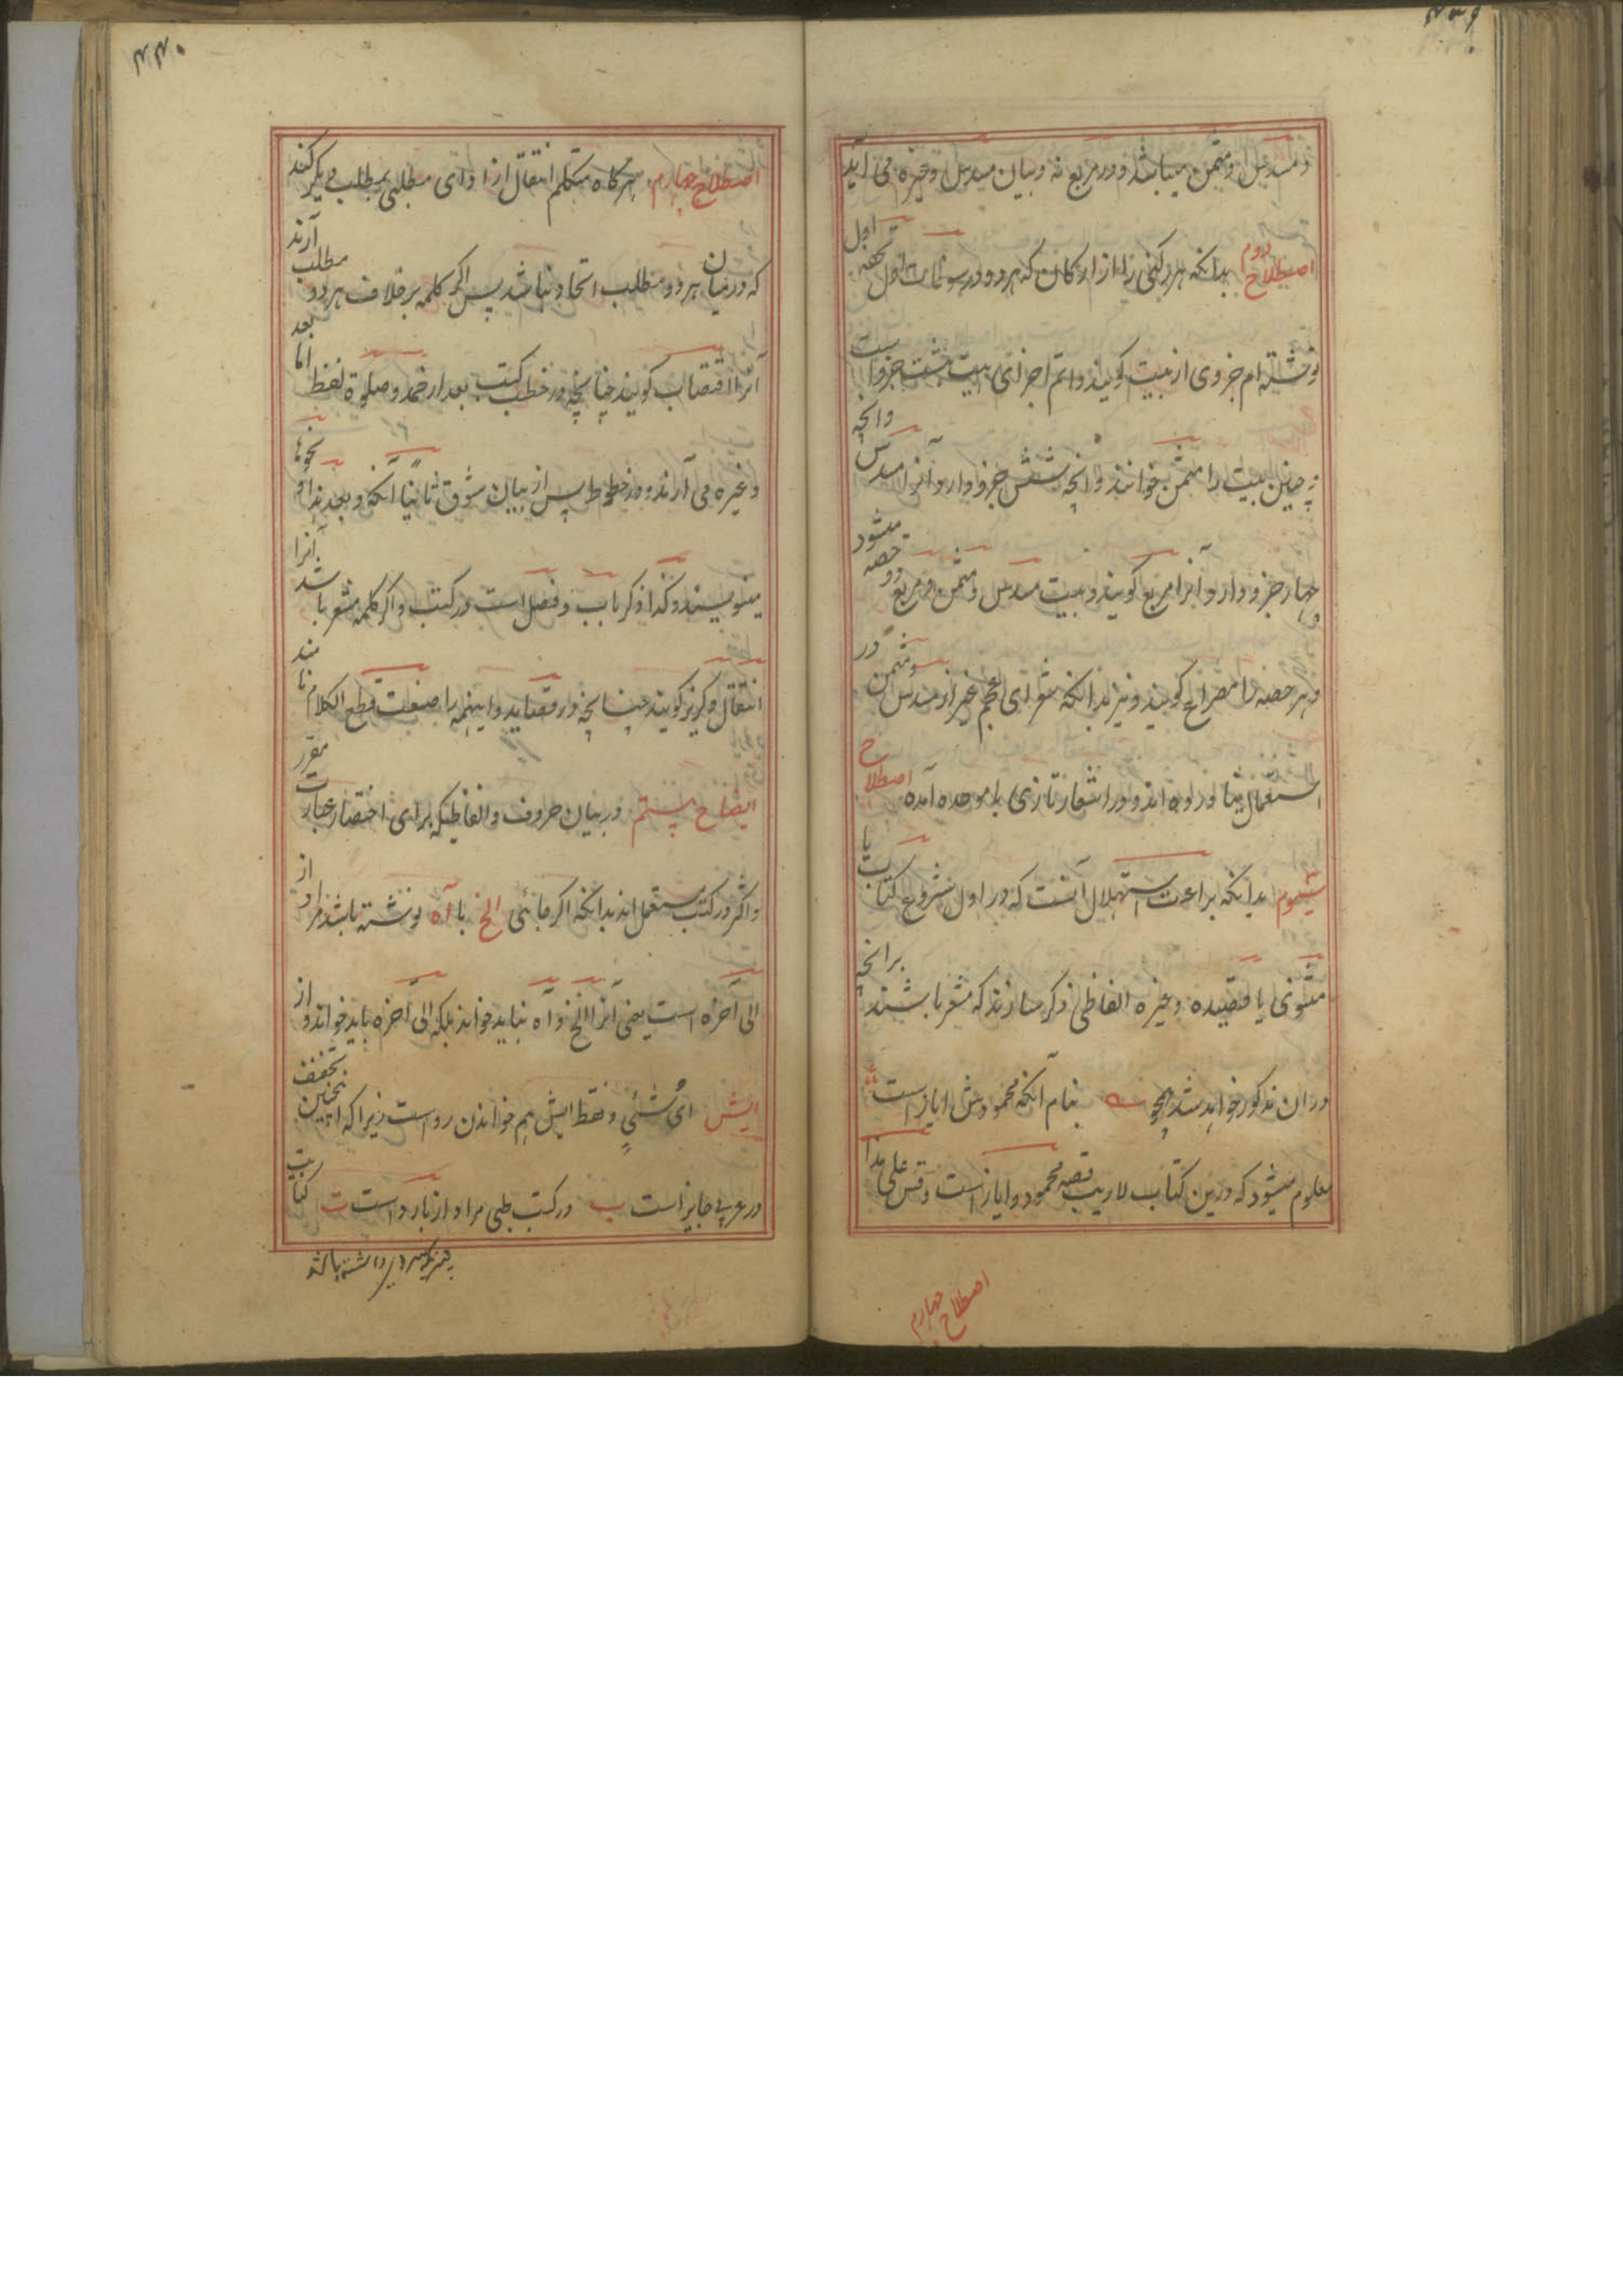 ۴۳۹
و مسدس و مثمن میباشد و در مربع نه و بیان مسدس و غیره می آید
اصطلاح دوم بدانکه هر رکنی را از ارکان که هر دو در سو اول تحفه اول
نوشته ام جزوی از بیت کویند و اتم اجزای بیت هشت جزو است
و چنین بیت را مثمن خوانند و آنچه شش جزو دارد آنرا مسدس و آنچه
چهار جزو دارد آنرا مربع کویند و بیت مسدس و مثمن و مربع دو حصه میشود
و هر حصه را مصراع کویند و نیز بدانکه شعرای عجم غیر از مسدس و مثمن در
استعمال نیاورده اند و در اشعار تازی با موحده آمده اصطلاح
سیوم بدانکه براعت استهلال آنست که در اول شروع کتاب یا
مثنوی یا قصیده و غیره الفاظی ذکر سازند که مشعر باشند برانچه
دران مذکور خواهد شد همچو بنام آنکه محمودش ایاز است
معلوم میشود که درین کتاب لاریب قصه محمود و ایاز است و قس علی هذا
اصطلاح چهارم
۴۴۰
اصطلاح چهارم هر کاه متکلم انتقال از ادای مطلبی بمطلب دیکر کند
که درمیان هر دو مطلب اتحاد نباشد پس اکر کلمه بر خلاف هر دو مطلب آرند
آنرا اقتضاب کویند چنانچه در خطب کتب بعد از حمد و صلوة لفظ اما بعد
و غیره می آرند و در خطوط پس از بیان شوق ثانیا آنکه و بعد هذا و نحوها
مینویسند و کذا ذکر باب و فصل است در کتب و اکر کلمه مشعر باشد آنرا
انتقال و کریز کویند چنانچه در قصاید و اینهمه را صنعت قطع الکلام نامند
ایضاح پنجم در بیان حروف و الفاظیکه برای اختصار عبارت مقرر
و اکثر در کتب مستعمل اند بدانکه اکر جائی الخ یا آه نوشته باشد مراد از
الی آخره است یعنی آنرا الخ و آه نباید خواند بلکه الی آخره باید خواند و از
ایش ای شئیٍ و فقط ایش هم خواندن رواست زیرا که اینچنین تخفف
در عربی جایز است ب در کتب طبی مراد از بارد است ت کتابیت